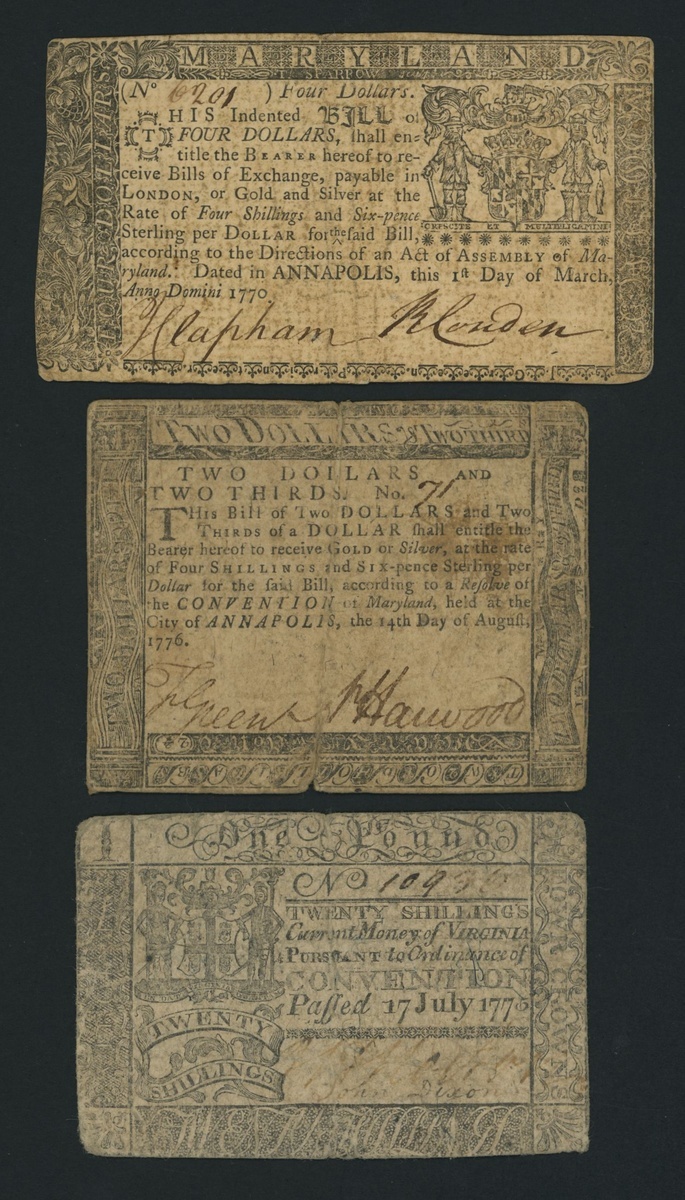 MARYLAND
T. SPARROW
FOUR DOLLARS.
(No 6201 ) Four Dollars.
THIS Indented BILL of
FOUR DOLLARS, shall en=
title the BEARER hereof to re-
ceive Bills of Exchange, payable in
LONDON, or Gold and Silver at the
Rate of Four Shillings and Six-pence
Sterling per DOLLAR for the said Bill,
according to the Directions of an Act of ASSEMBLY of Ma-
ryland. Dated in ANNAPOLIS, this 1st Day of March,
Anno Domini 1770
CRESCITE ET MULTIPLICAMINI
JClapham RCouden
TWO DOLLARS & TWO THIRD
TWO DOLLARS AND
TWO THIRDS. No. 71
THIS Bill of Two DOLLARS and Two
THIRDS of a DOLLAR shall entitle the
Bearer hereof to receive GOLD or Silver, at the rate
of Four SHILLINGS and SIX-pence Sterling per
Dollar for the said Bill, according to a Resolve of
the CONVENTION of Maryland, held at the
City of ANNAPOLIS, the 14th Day of August,
1776.
Green Harwood
One Pound
No 109
TWENTY SHILLINGS
Current Money of VIRGINIA
PURSUANT to Ordinance of
CONVENTION
Passed 17 July 1775
TWENTY
SHILLINGS
John Dixon